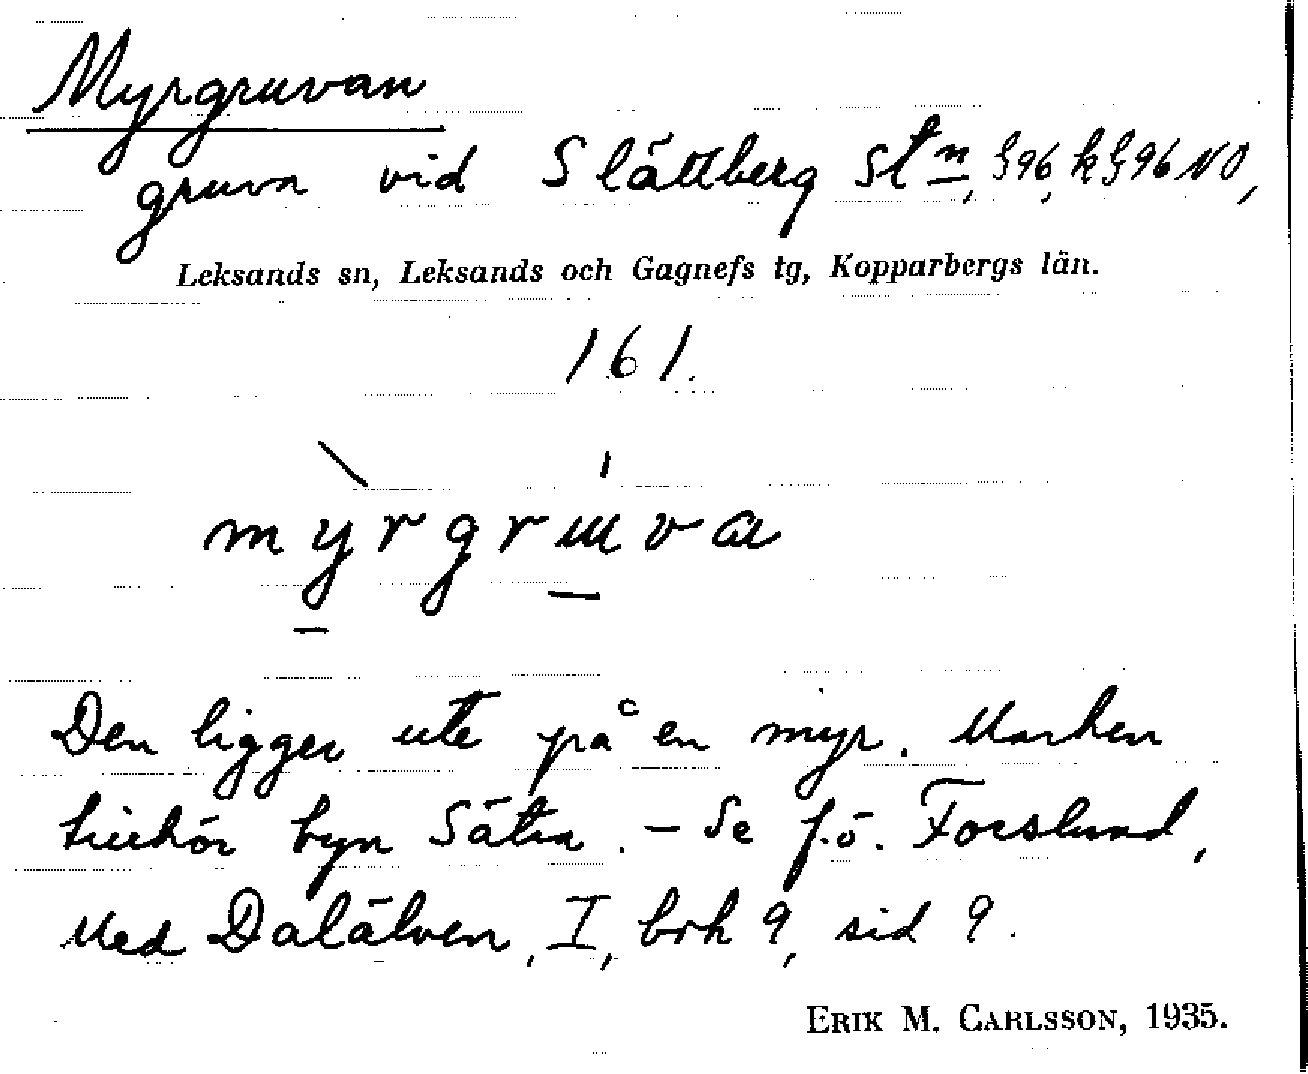 Myrgruvan
gruva vid Slättberg Stn, §96, k§96 NO,
Leksands sn, Leksands och Gagnefs tg, Kopparbergs län.
161.
myrgruva
Den ligger ute på en myr. Marken
tillhör byn Sätra. - Se f.ö. Forslund,
Med Dalälven, I, bok 9, sid 9.
ERIK M. CARLSSON, 1935.